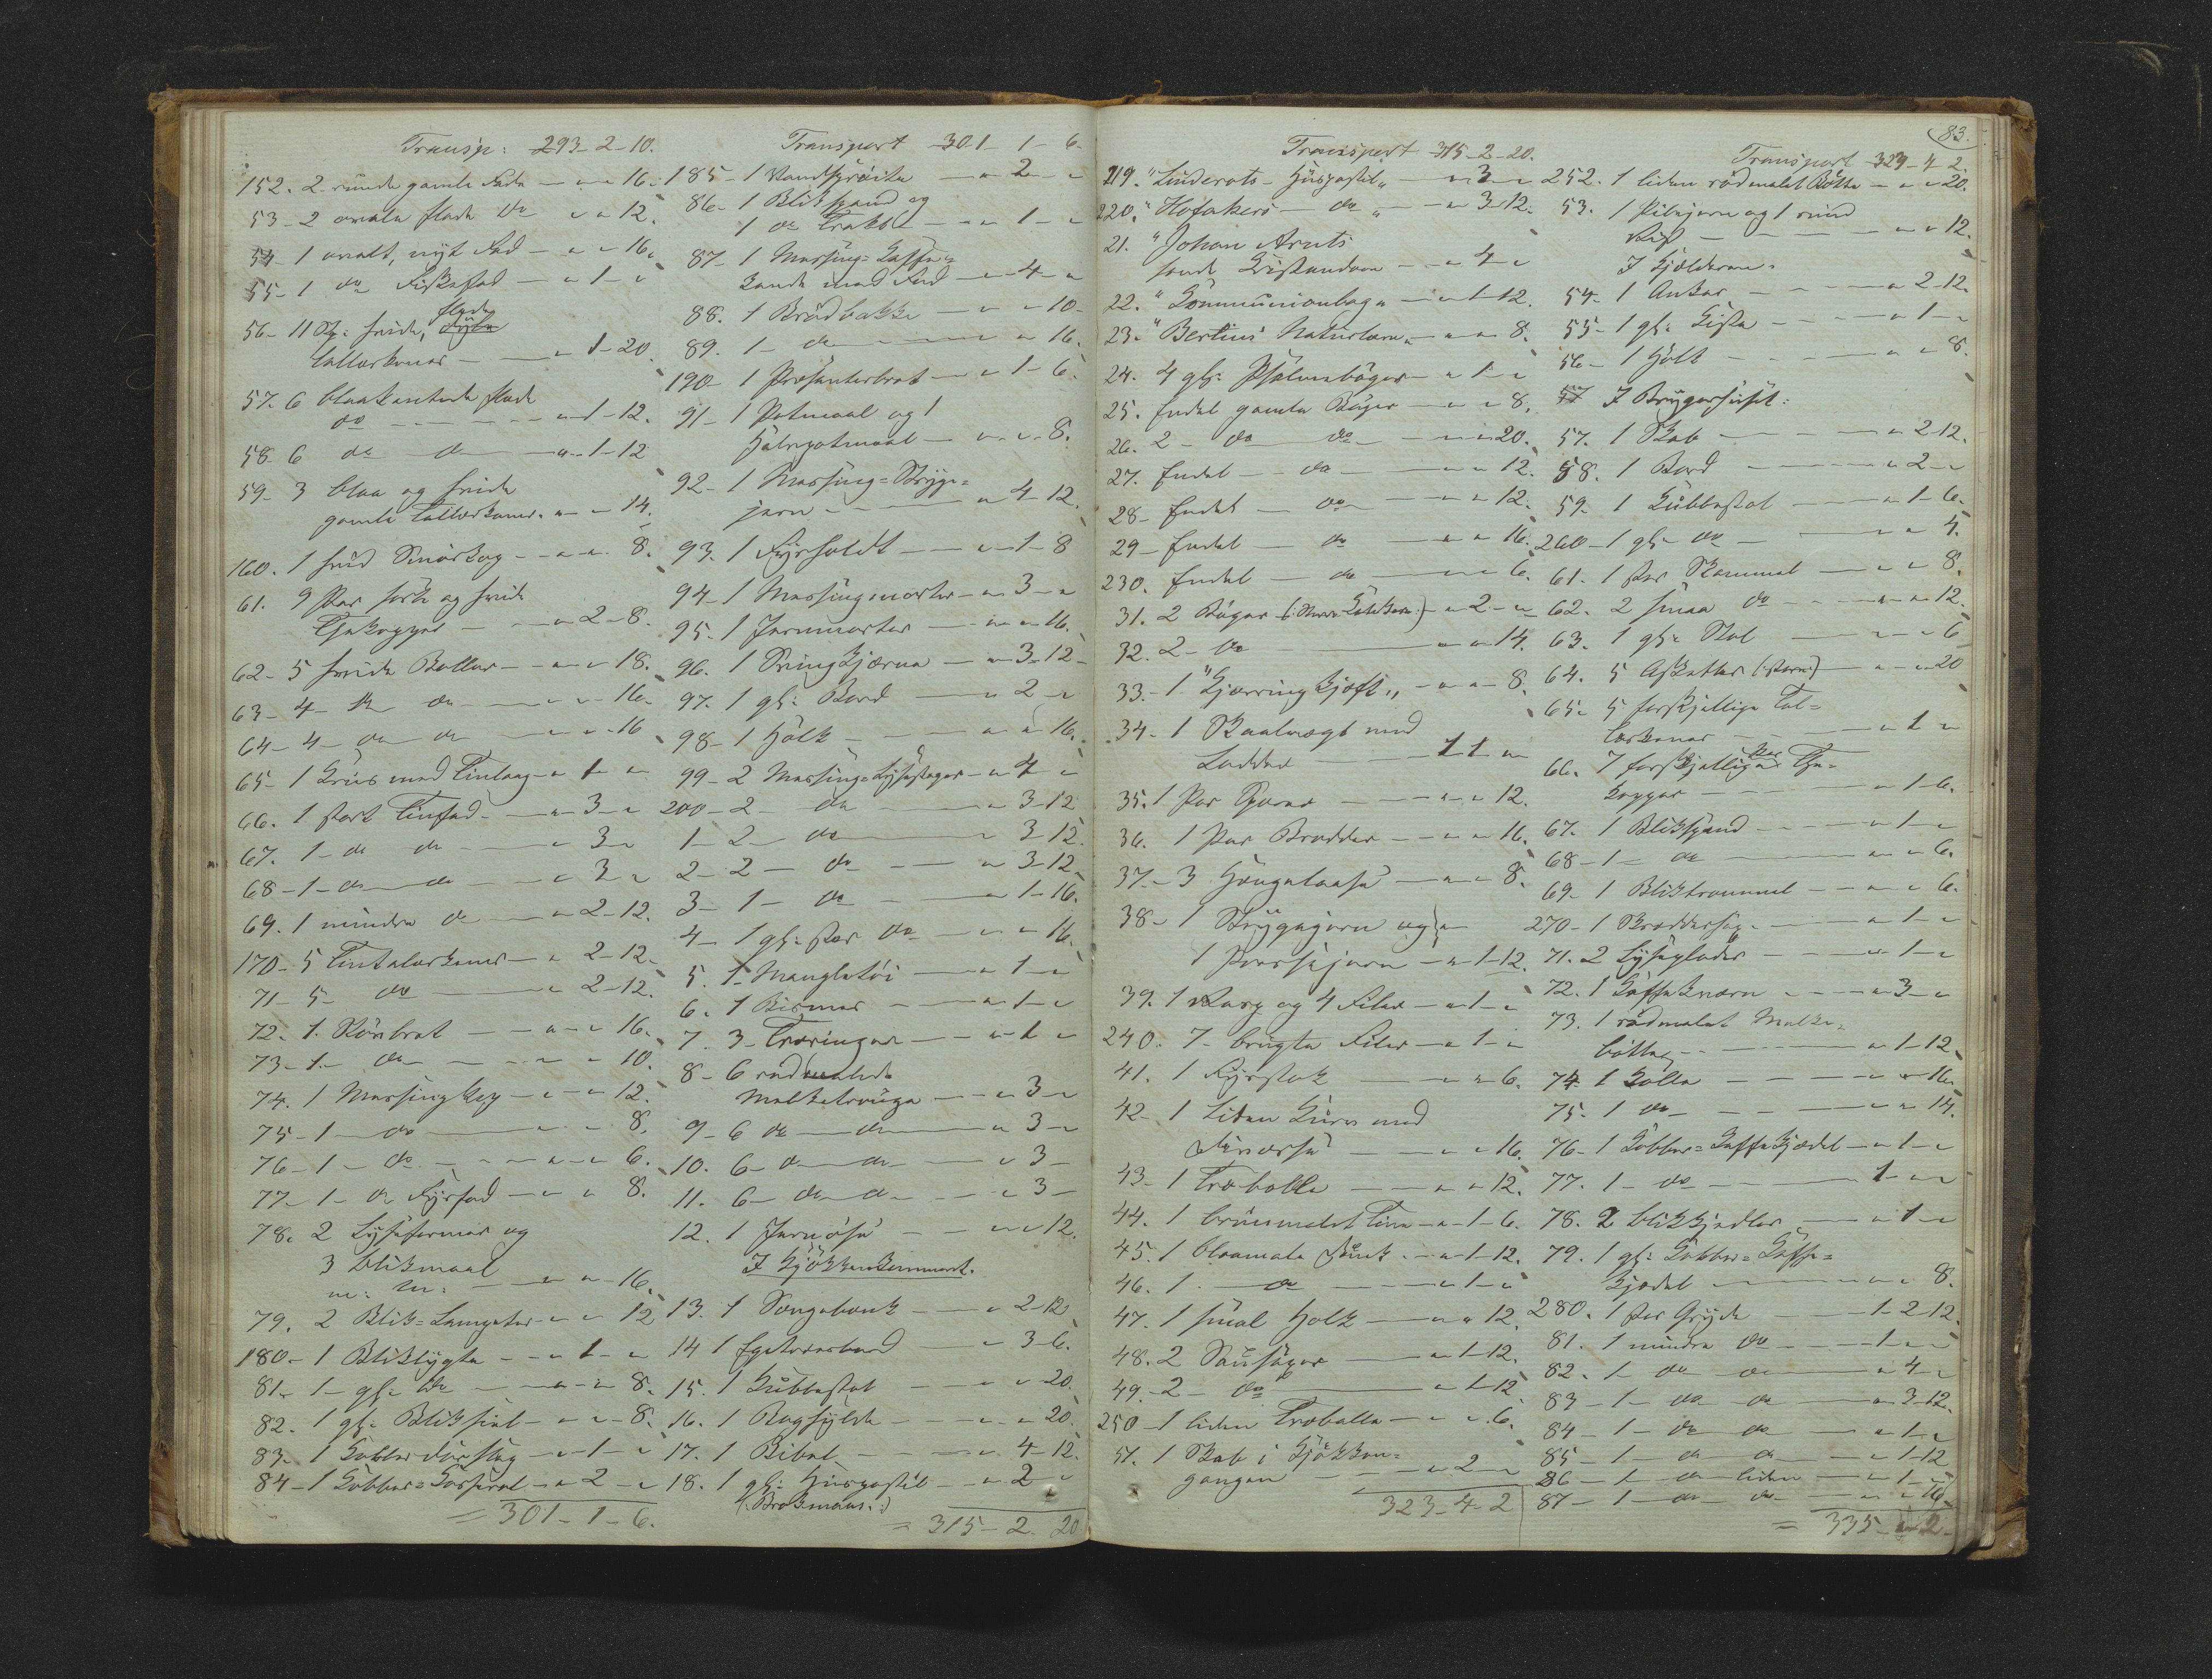 Transp: 293-2-10.
152. 2 runde gamle Fade - " - " 16.
53- 2 ovale flade do " - " 12.
54- 1 ovalt, nyt Fad - " - " 16.
55- 1 do Fiskefad - " 1 - "
56- 11 St: hvide, flade
Tallerkener - " 1-20.
57. 6 blaakantede flade
do - " 1-12.
58. 6 do do " 1-12
59- 3 blaa og hvide
gamle Tallerkener. " - " 14.
160. 1 hvid Smørkop - " - " 8.
61. 9 Par sorte og hvide
Thekopper - " 2-8.
62- 5 hvide Boller - " - " 18.
63- 4- do do " - " 16.
64- 4- do do " - " 16
65- 1 Krus med Tinlaag - " 1 - "
66. 1 stort Tinfad - " 3 - "
67. 1- do do " 3 - "
68- 1- do do " 3 - "
69. 1 mindre do - " 2-12.
170- 5 Tintalerkener - " 2-12.
71- 5- do " 2-12.
72- 1. Rørbret - " - " 16.
73- 1- do " - " 10.
74. 1 Messingkop - " - " 12.
75- 1- do " - " 8.
76- 1- do " - " 6.
77- 1- do Fyrfad - " - " 8.
78. 2 Lyseformer og
3 blikmaal
m: m: " - " 16.
79. 2 Blik-Lampetter - " - " 12
180- 1 Bliklygte - " 1 - "
81- 1- gl: do - " - " 8.
82. 1 gl: Bliksiel - " - " 8.
83- 1 Kobberdørslag - " 1 - "
84- 1 Kobber= - " 2 - "
= 301-1-6.
Transport 301- 1- 6-
185- 1 Vandsprøite - " 2 - "
86- 1 Blikspand og
1 do Trakt - " 1 - "
87- 1 Messing-Kaffe=
kande med Fad - " 4 - "
88. 1 Brødbakke - " - " 10-
89. 1- do " - " 16.
190- 1 Præsenterbret - " 1-6.
91- 1 Potmaal og 1
Halvpotmaal - " - " 8.
92- 1 Messing=Stryge=
jern - " 4-12.
93. 1 Fyrholdt - " 1-8
94- 1 Messingmorter - " 3 - "
95. 1 Jernmorter - " - " 16.
96. 1 Svingkjærne - " 3-12-
97. 1 gl: Bord - " 2 - "
98- 1 Holk - " - " 16.
99- 2 Messing=Lysestager - " 4 - "
200- 2- do " 3-12
1- 2- do " 3-12.
2- 2- do " 3-12.
3- 1- do " 1-16.
4- 1 gl: stor do - " - " 16.
5. 1 Mangletøi - " 1 - "
6. 1 Bismer - " 1 - "
7. 3- Træringer - " 1 - "
8- 6 rødmalede
Melketruge - " 3 - "
9- 6 do do " 3 - "
10. 6- do do " 3 -
11. 6- do do " 3 -
12. 1 Jernøse - " - " 12.
I Kjøkkenkammeret.
13. 1 Sengebænk - " 2-12
14 1 Egetræesbord - " 3-6.
15. 1 Kubbestol - " - " 20.
16. 1 Boghylde - " - " 20.
17. 1 Bibel - " 4-12.
18. 1 gl: Huspostil - " 2 - "
(:Brokmans:)
= 315-2. 20
Transport 315-2-20.
219. "Linderots-Huspostil" - " 3 - "
220. "Hofakers- do " - " 3-12.
21. "Johan Arnts
sande Kristendom - " 4 - "
22. "Kommunionbog" - " 1-12.
23. "Bertius Naturlære" - " - " 8.
24. 4 gl: Psalmebøger - " 1 - "
25. Endel gamle Bøger - " - " 8.
26. 2- do do - " - " 20.
27. Endel - do - " - " 12.
28- Endel - do - " - " 12.
29- Endel - do " - " 16.
230. Endel - do " - " 6.
31. 2 Bøger - " 2 - "
32. 2- do " - " 14.
33- 1 "Kjærringkjeft" - " - " 8.
34- 1 Skaalvægt med
Lodder - 1 1 "
35. 1 Par Sporer - " - " 12.
36. 1 Par Brodder - " - " 16.
37- 3 Hængelaase - " - " 8.
38- 1 Strygejern og
1 Pressejern - " 1-12.
39. 1 Rasp og 4 Filer - " 1 - "
240. 7- brugte Filer - " 1 - "
41. 1 Fyrstok - " - " 6.
42- 1 Liden Kurv med
- " - " 16.
43- 1 Træbolle - " - " 12.
44. 1 brunmalet Tine - " 1-6.
45. 1 blaamalt Dunk - " 1-12.
46. 1- do " 1 - "
47. 1 smal Holk - " - " 12.
48. 2 - " 1-12.
49- 2- do " 1-12
250- 1 liden Træbolle - " - " 6.
51. 1 Skab i Kjøkken=
gangen - " 2 - "
323-4-2
83.
Transport 323-4-2.
252. 1 liden rødmalet Bøtte - " - " 20.
53. 1 Pibejern og 1 rund
- " - " 12.
I Kjelderen.
54- 1 Anker - " 2-12.
55- 1 gl: Kiste - " 1 - "
56- 1 Holk - " - " 8.
I Bryggerhuset:
57. 1 Skab - " 2-12.
58. 1 Bord - " 2 - "
59. 1 Kubbestol - " 1-6.
260- 1 gl- do - " - " 4.
61. 1 stor Skammel - " - " 8.
62. 2 smaa do - " - " 12.
63. 1 gl: Stol - " - " 6
64. 5 Asketter (:store:) - " - " 20
65. 5 forskjellige Tal=
lerkener - " 1 - "
66. 7 forskjellige Par The=
kopper - " 1-6.
67. 1 Blikspand - " 1 - "
68- 1- do " - " 6.
69. 1 Bliktrommel - " - " 6.
270- 1 - " 1 - "
71. 2 Lyseplader - " 1 - "
72. 1 Kaffekværn - " 3 - "
73. 1 rødmalet Melke=
bøtte - " 1-12.
74. 1 Kolle - " - " 16.
75. 1 do - " - " 14.
76- 1 Kobber=Kaffekjedel - " 1 - "
77. 1- do - 1 - "
78. 2 blikkjedler - " 1 - "
79. 1 gl: Kobber=Kaffe=
kjedel - " - " 8.
280. 1 stor Gryde - 1-2-12.
81. 1 mindre do - 1 - "
82. 1- do do " 4 - "
83- 1- do do " 3-12.
84- 1- do do " 1 - "
85- 1- do do " 1-12
86- 1- do liden - " 1 - "
87- 1- do do - " - " 16.
= 335- " 2-